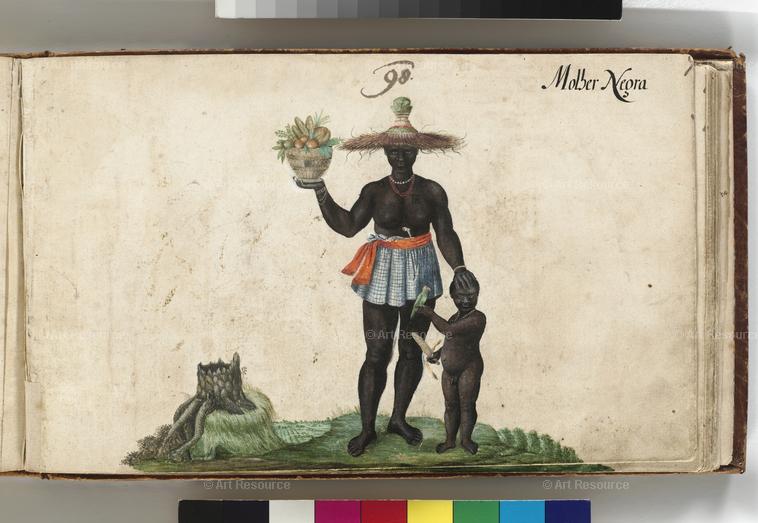 98.
Molher Negra
© Art Resource
© Art Resource
© Art Resource
© Art Resource
© Art Resource